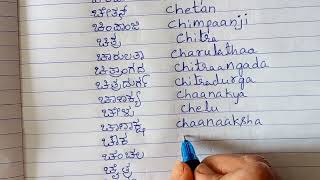 ಚೇತನ Chetan
ಚಿಂಪಾಂಜಿ Chimpaanji
ಚಿತ್ರ Chitra
ಚಾರುಲತಾ Charulathaa
ಚಿತ್ರಾಂಗದ Chitraangada
ಚಿತ್ರದುರ್ಗ Chitradurga
ಚಾಣಕ್ಯ Chaanakya
ಚೇಳು Chelu
ಚಾಣಾಕ್ಷ Chaanaaksha
ಚೌಕ
ಚಂಚಲ
ಚೈತ್ರ